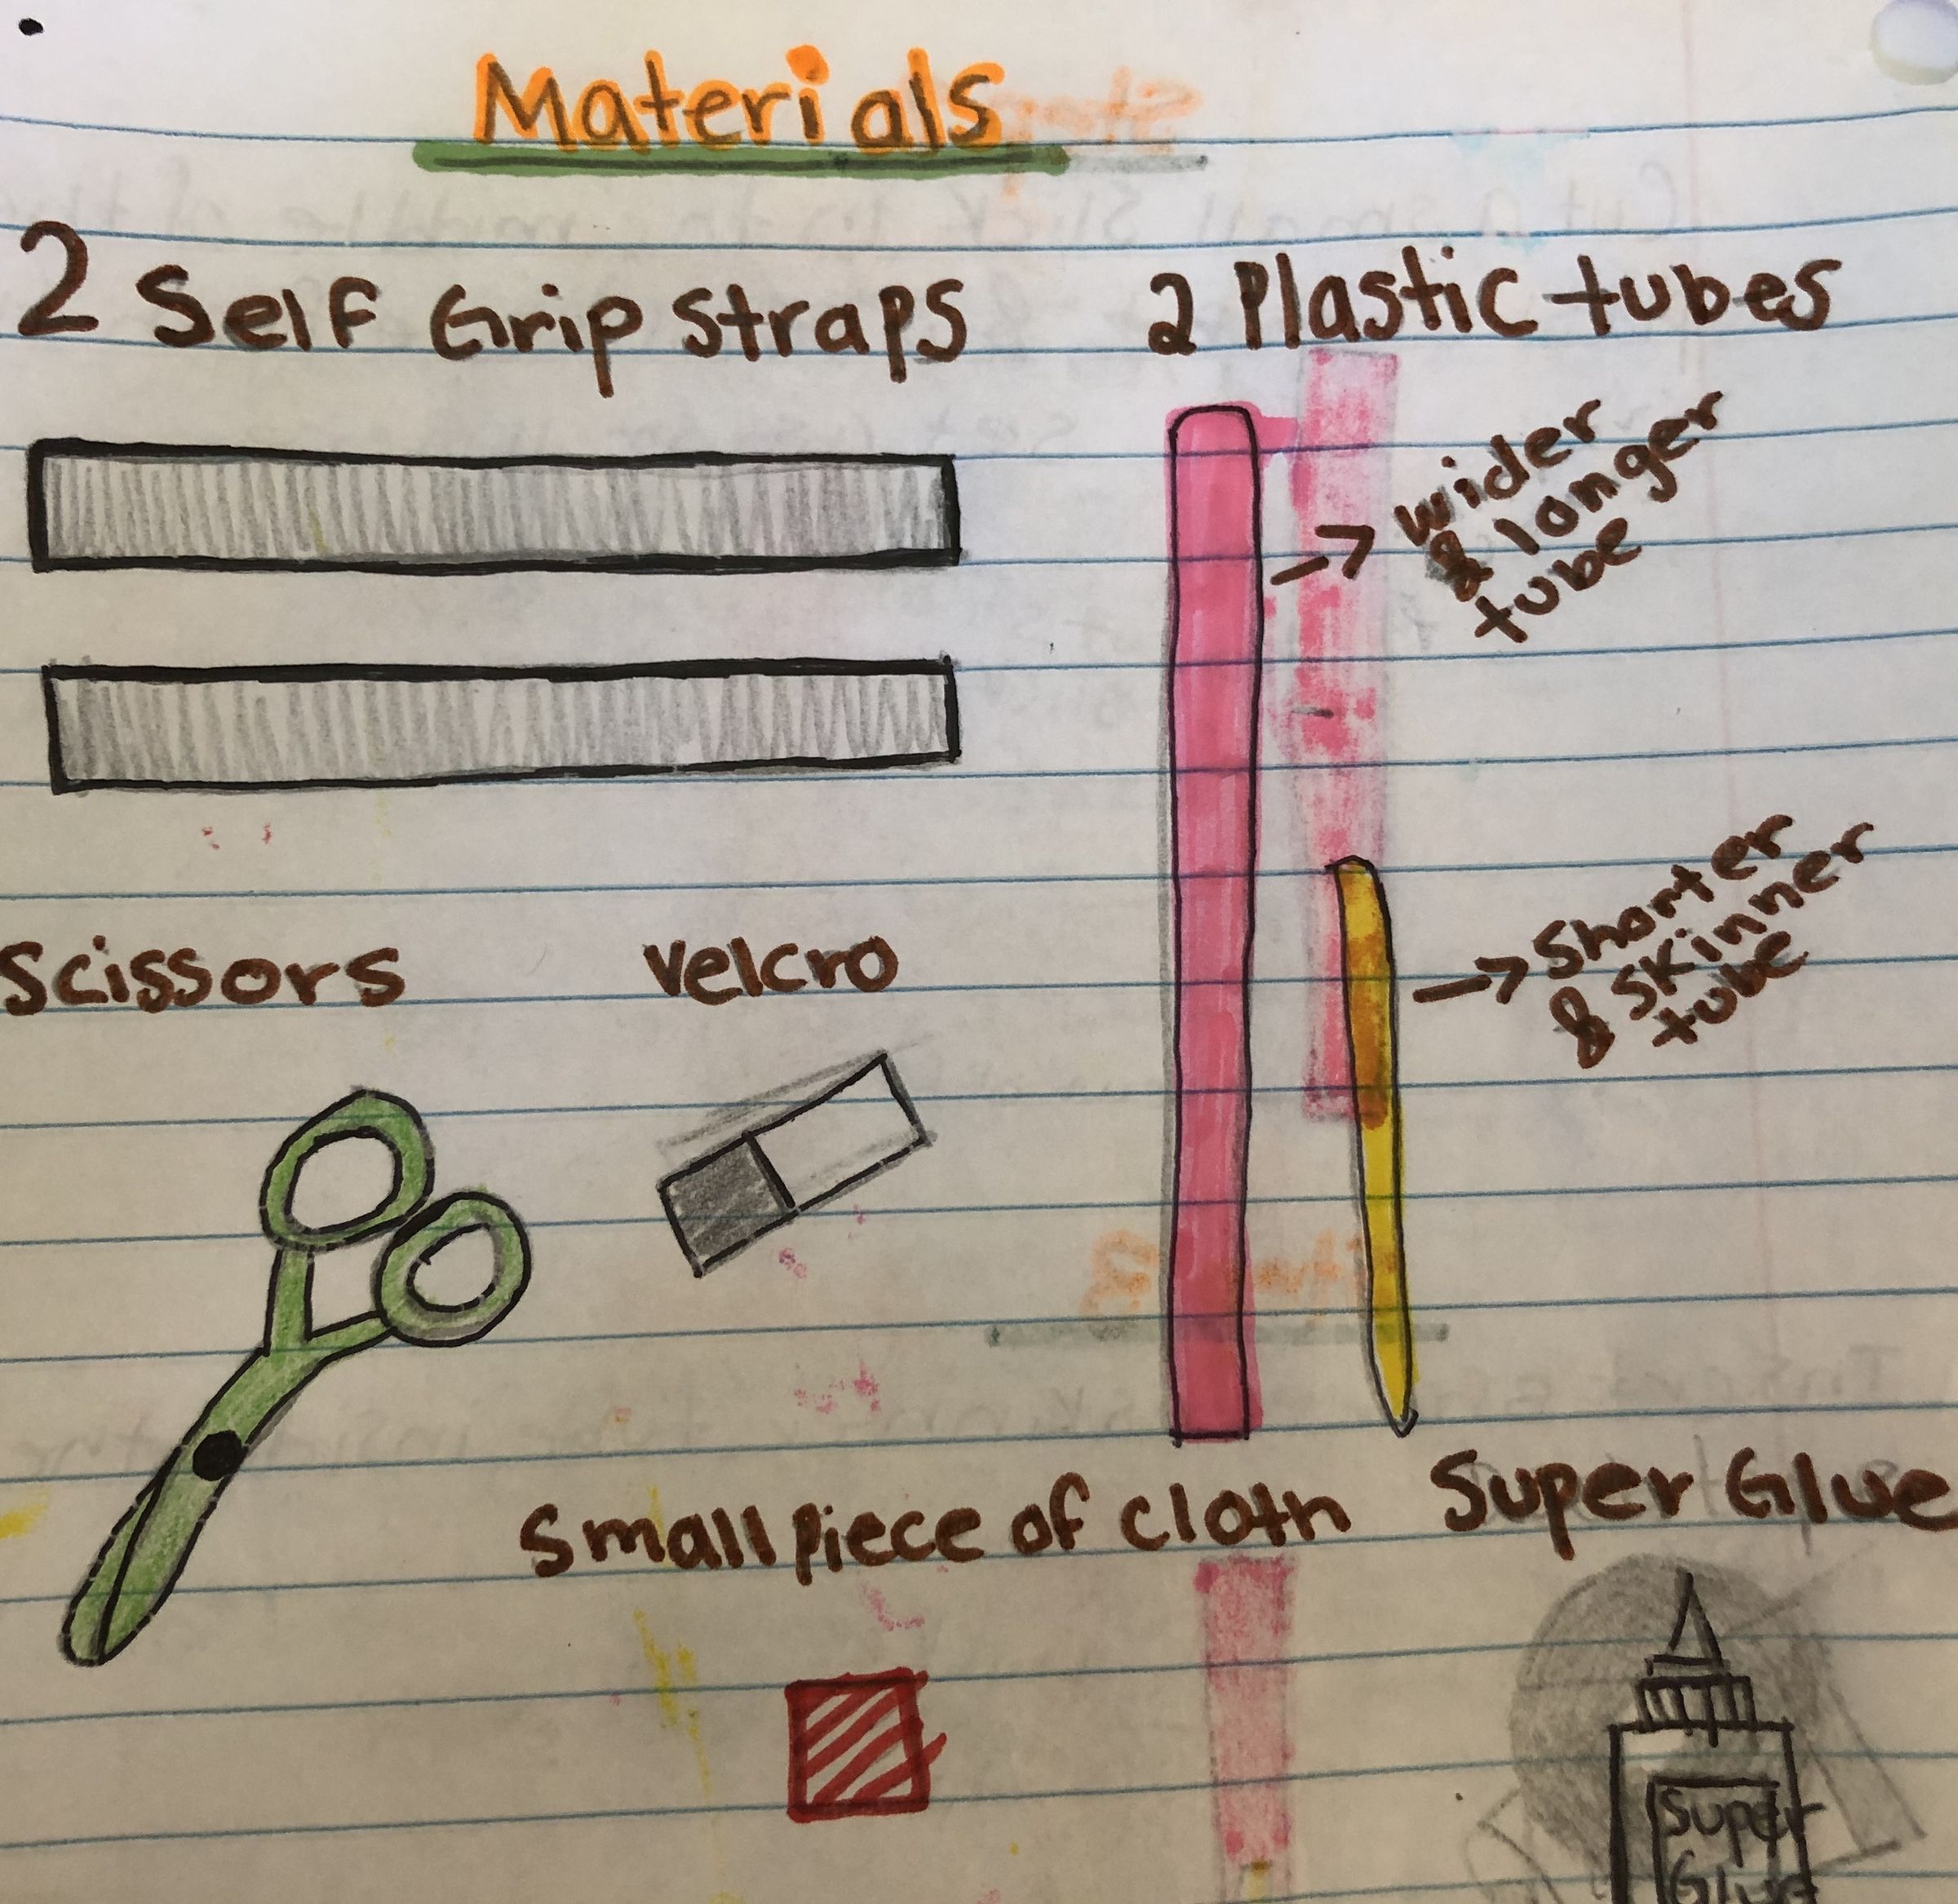 Materials
2 Self Grip straps
2 Plastic tubes
wider
& longer
tube
Shorter
& skinner
tube
Scissors
Velcro
Small piece of cloth
Super Glue
Super
Glue